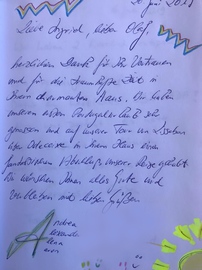 Liebe Ingrid, lieber Olaf,
herzlichen Dank für Ihr Vertrauen
und für die traumhafte Zeit in
Ihrem charmanten Haus. Wir haben
unseren ersten Portugalurlaub sehr
genossen und auf unserer Tour von Lissabon
in Ihrem Haus einen
Abschluss unserer Reise gehabt.
Wir wünschen Ihnen alles Gute und
verbleiben mit lieben Grüßen
Andrea
Alexander